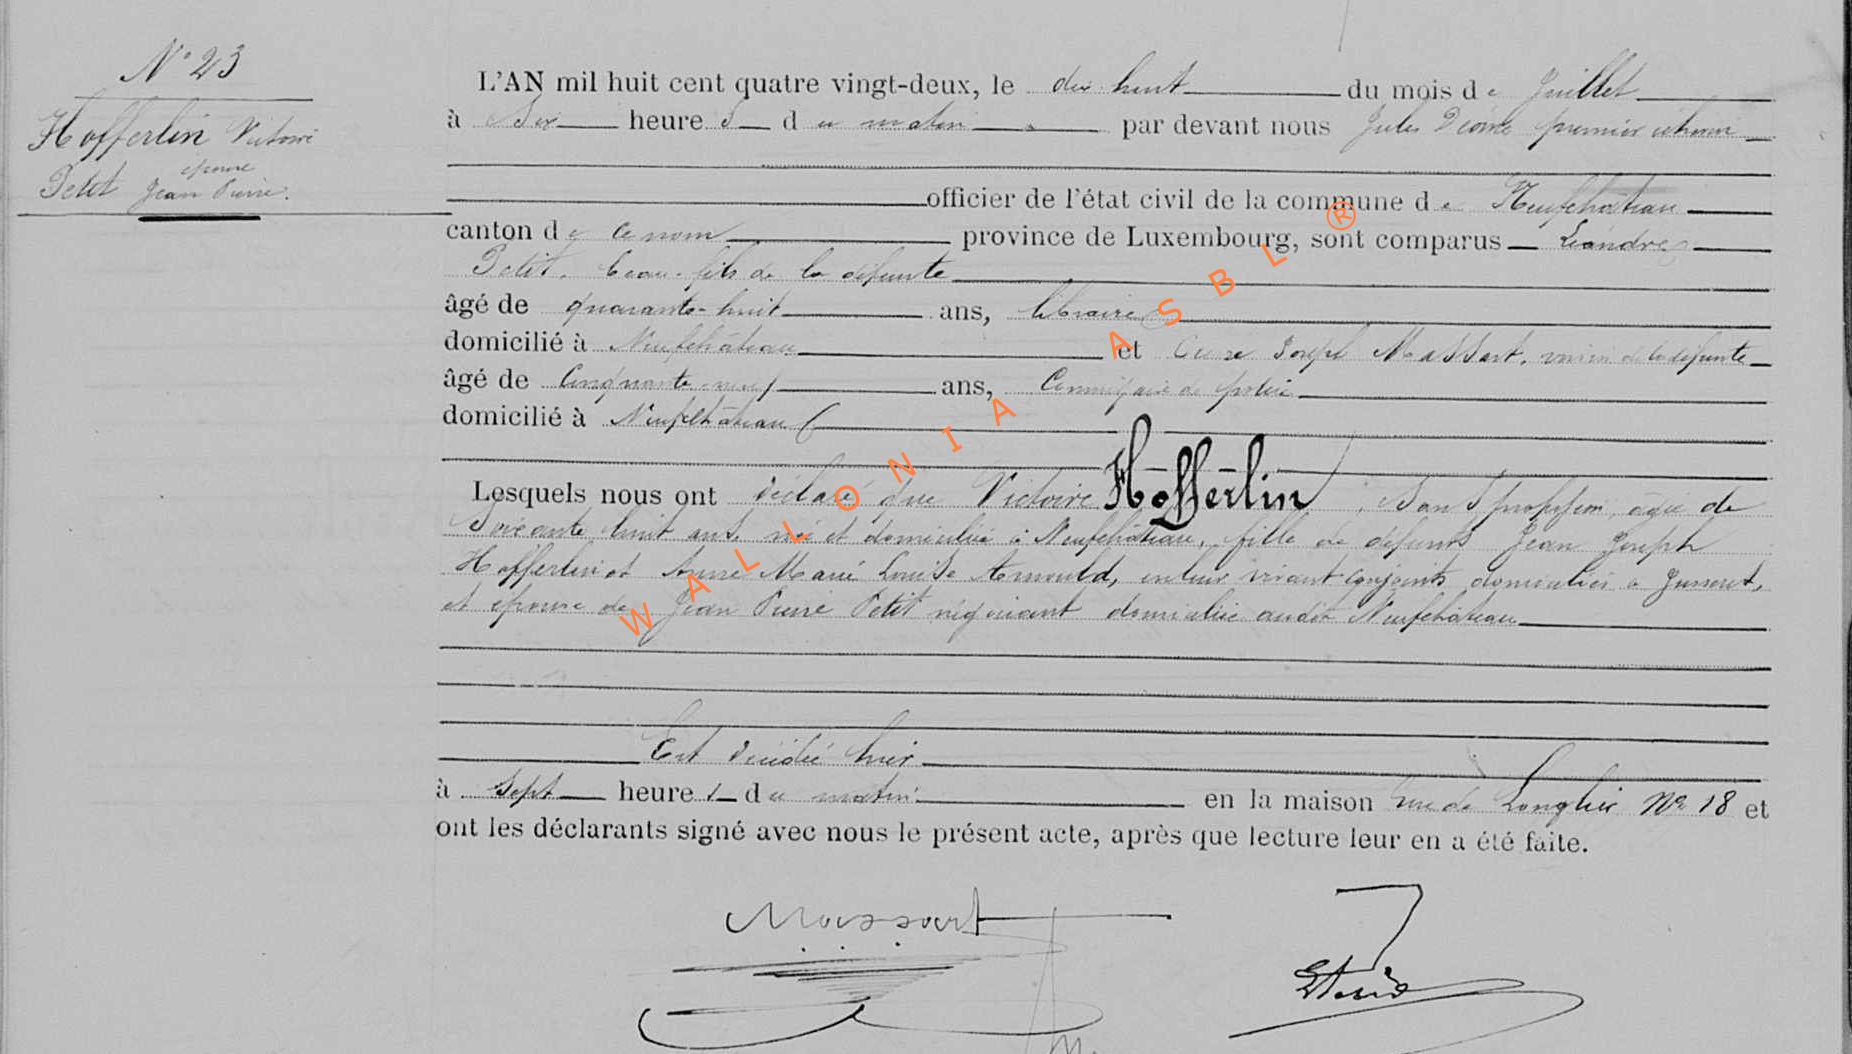 N° 23
Hofferlin Victoire
épouse
Petit Jean Pierre.
L'AN mil huit cent quatre vingt-deux, le dix huit du mois de Juillet
à Dix heures du matin par devant nous Jules premier échevin
officier de l'état civil de la commune de Neufchâteau
canton de ce nom province de Luxembourg, sont comparus Léandre
Petit, beau-fils de la défunte
âgé de quarante-huit ans, libraire
domicilié à Neufchâteau et Joseph Massart, voisin de la défunte
âgé de Cinquante-neuf ans, Commissaire de police
domicilié à Neufchâteau
Lesquels nous ont déclaré que Victoire Hofferlin, Sans profession, âgée de
Soixante huit ans, née et domiciliée à Neufchâteau, fille de défunts Jean Joseph
Hofferlin et Anne Marie Louise Arnould, en leur vivant conjoints domiciliés à
et épouse de Jean Pierre Petit négociant domicilié audit Neufchâteau
Est décédée hier
à Sept heures du matin en la maison rue de Longlier N° 18 et
ont les déclarants signé avec nous le présent acte, après que lecture leur en a été faite.
Massart
WALLONIA ASBL ®